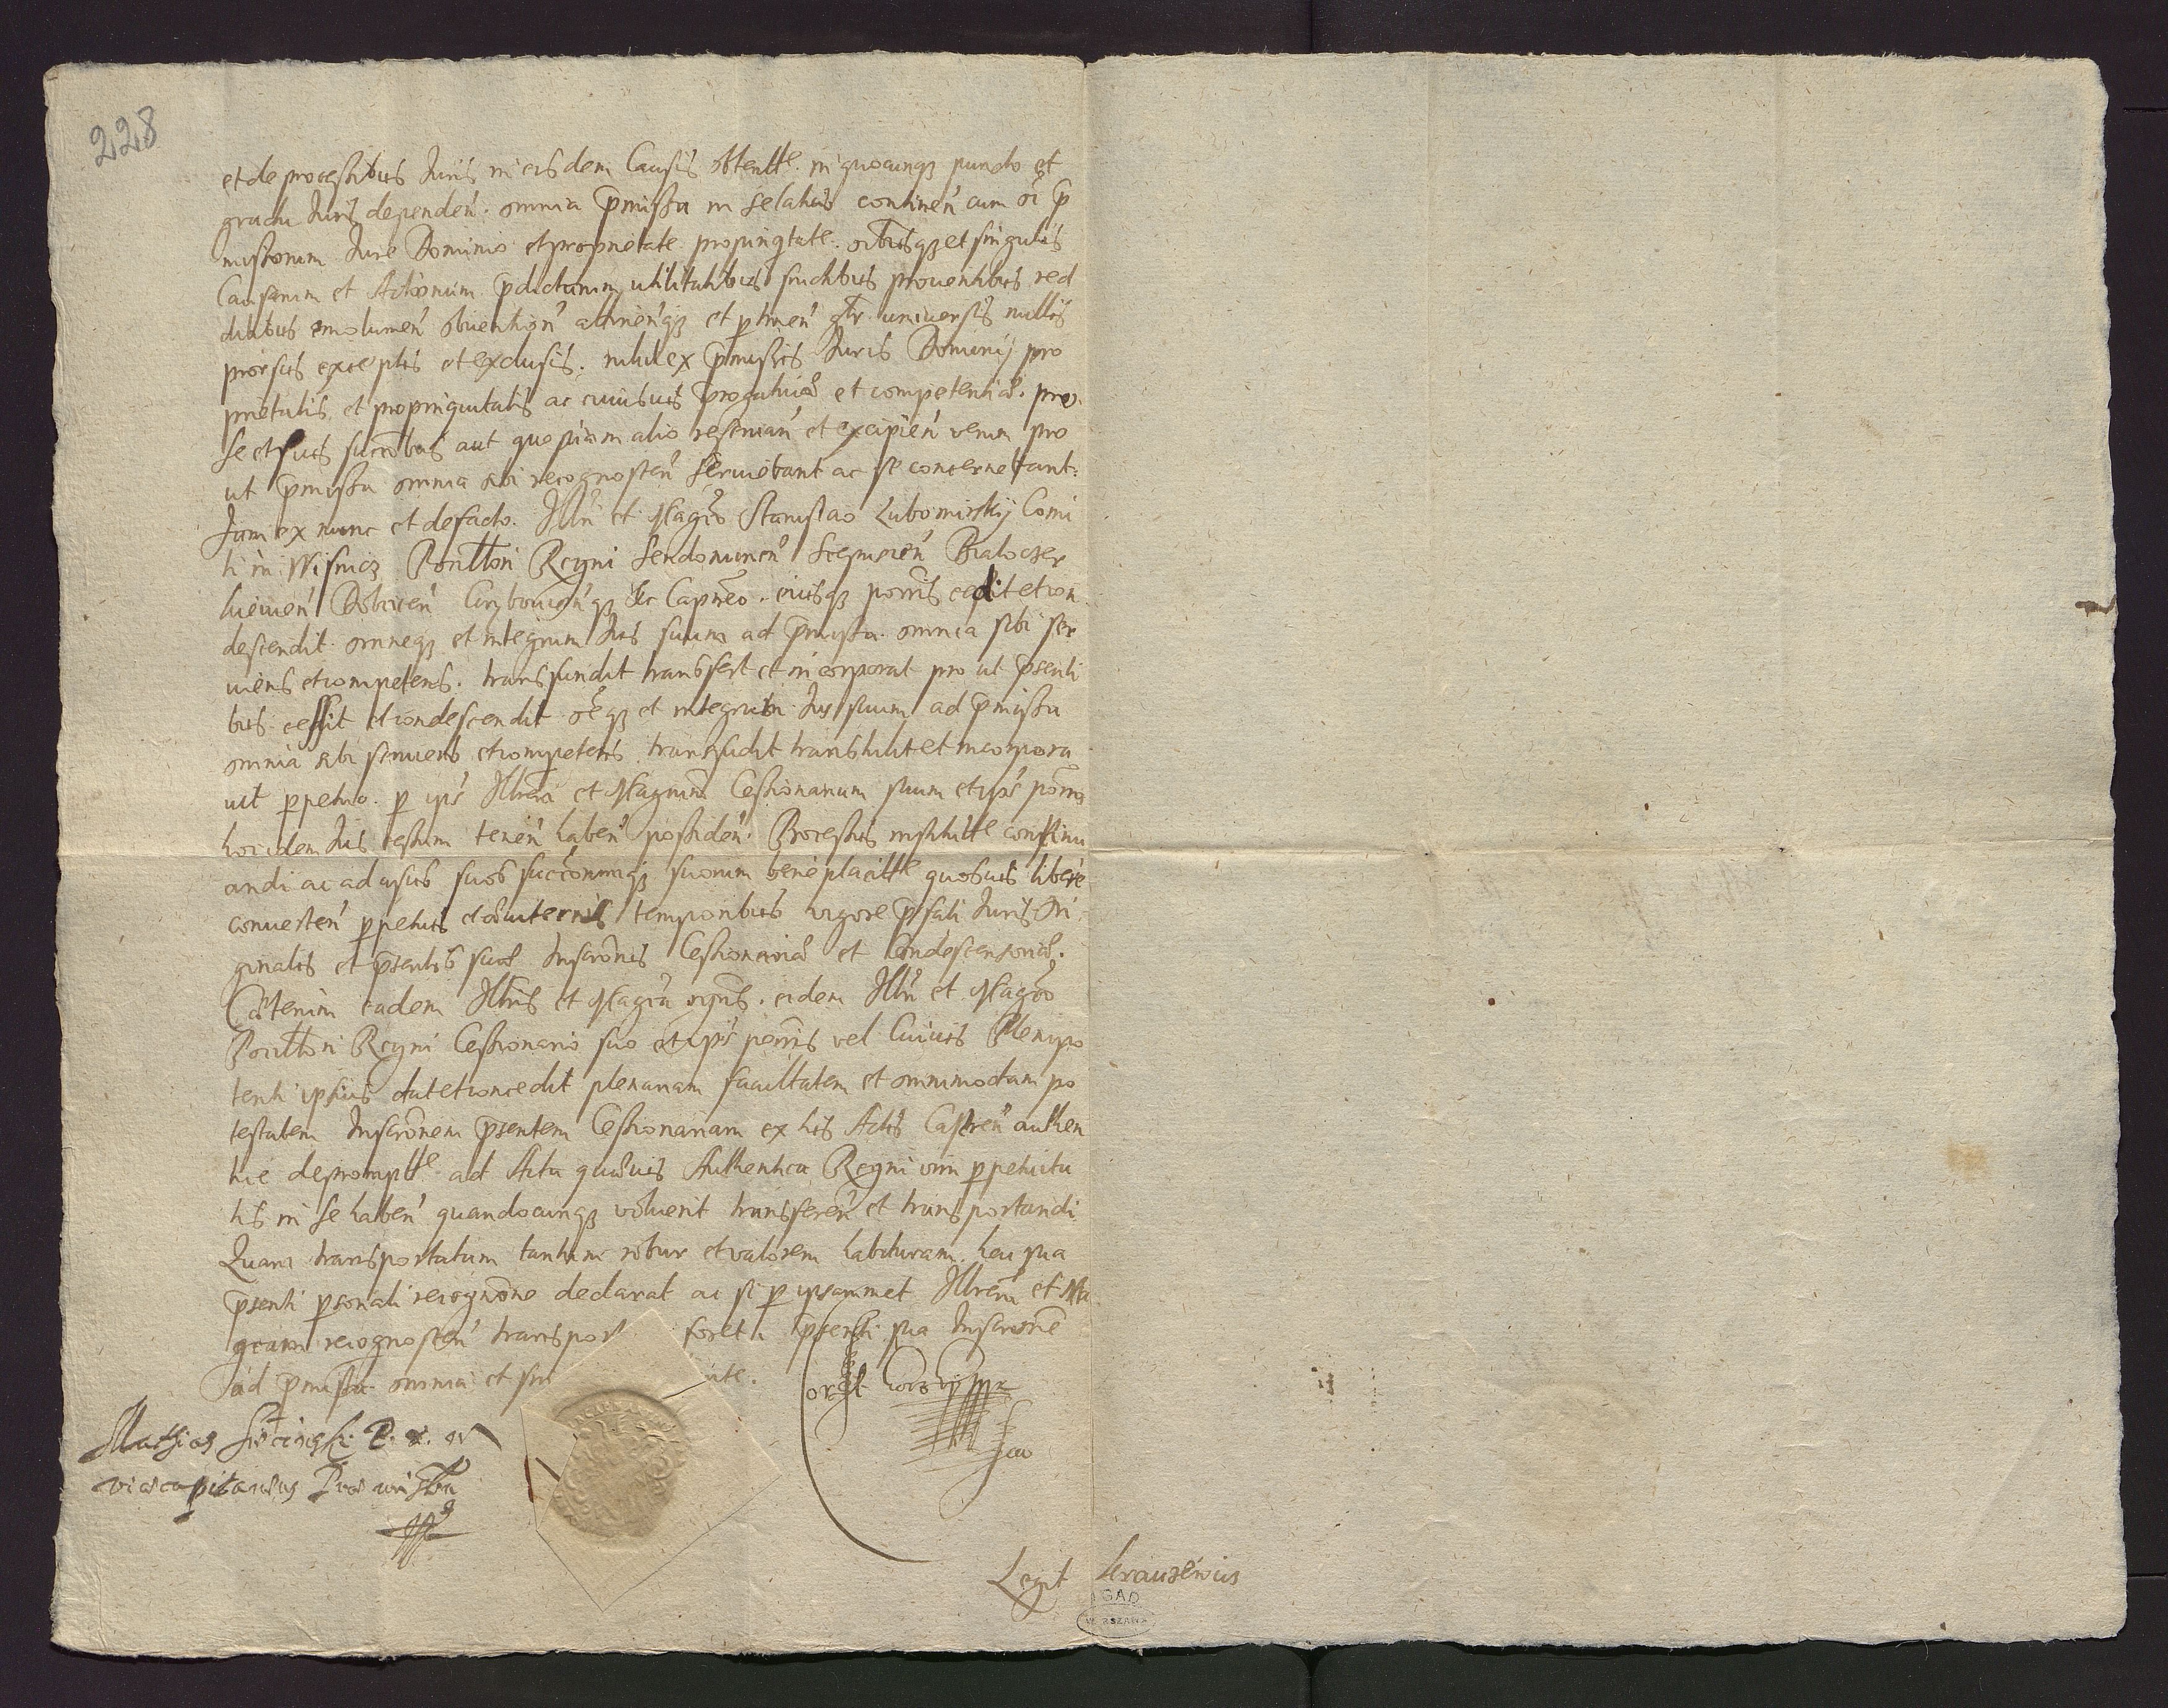 228
et de processibus Juris in eisdem Causis obtentt. in quocunq₃ puncto et
gradu Juris dependen. omnia pmissa in se latius continen cum oi p
missorum Jure Dominio et proprietate propinqtate. oibusq₃ et singulis
Causarum et Actionum pdictarum utilitatibus fructibus proventibus red
ditibus emolumen obvention attinenq₃ et ptinen gntr. universis nullis
prorsus exceptis et exclusis. nihil ex pmissis Juris Dominij pro
prietatis et propinquitatis ac cuiusvis progativae et competentiae. pro
se et suis succribus aut quopiam alio reservan et excipien verum pro
ut pmissa omnia sibi recognoscen serviebant ac se concernebant.
Jam ex nunc et de facto. Illri et Magco Stanislao Lubomirskij Comi
ti in Wisnicz Pocillatori Regni Sendomirien Scepusien Bialocer
kievien Dobcicen Grybovienq₃ &c Capneo. eiusq₃ porris cedit et con
descendit. omneq₃ et integrum Jus suum ad pmissa omnia sibi ser
viens et competens. transfundit transfert et incorporat pro ut psenti
bus cessit et condescendit oeq₃ et integrum Jus suum ad pmissa
omnia sibi serviens et competens transfudit transtulit et incorpora
vit ppetuo. p ips Illrem et Magnum Cessionarium suum et ips porros
hoc idem Jus cessum tenen haben possiden. Processus institutt continu
andi ac ad usus suos succorumq₃ suorum beneplacitt quosvis libere
converten ppetuis et aeviternis temporibus vigore psati Juris Ori
ginalis et psentis suae Inscronis Cessionariae et Condescensoriae.
Caeterum eadem Illris et Magca rgns. eidem Illri et Magco
Pocillatori Regni Cessionario suo et ips porris vel cuivis Plenipo
tenti ipsius dat et concedit plenariam facultatem et omnimodam po
testatem Inscronem psentem Cessionariam ex his Actis Castren authen
tice depromptt ad Acta quaevis Authentica Regni vim ppetuita
tis in se haben quandocunq₃ voluerit transferen et transportandi
Quam transportatam tantum robur et valorem habituram. hac sua
psenti psonali recognone declarat ac si p ipsammet Illrem et Ma
gcam recognoscen transpor foret psenti sua Inscrone
ad pmissa omnia et
Mathias
vicecapitaneus
Legit Krauzewicz
AGAD
WARSZAWA